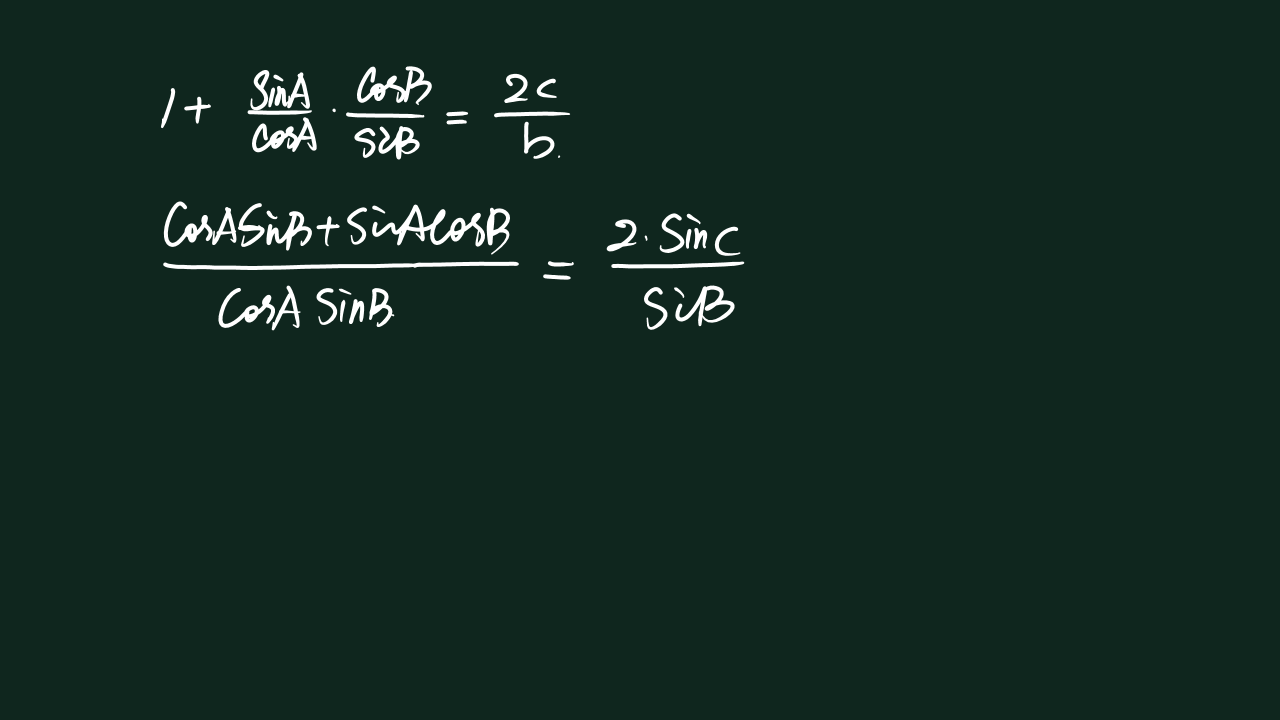 1 + sinA/cosA · cosB/sinB = 2c/b.
(cosAsinB + sinAcosB)/(cosA sinB) = 2·sinC/sinB